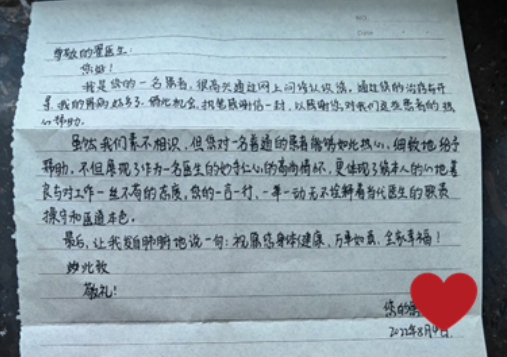 NO.
Date
尊敬的翟医生:
您好!
我是您的一名患者,很高兴通过网上问诊认识您,通过您的治疗与开
导,我的胃病好多了。借此机会,执笔感谢信一封,以感谢您对我们这些患者的热
心帮助。
虽然我们素不相识,但您对一名普通的患者能够如此热心、细致地给予
帮助,不但展现了作为一名医生的妙手仁心的高尚情怀,更体现了您本人的心地善
良与对工作一丝不苟的态度,您的一言一行、一举一动无不诠释着当代医生的职责
操守和医道本色。
最后,让我发自肺腑地说一句:祝愿您身体健康、万事如意、全家幸福!
致此敬
敬礼!
您的
2022年8月9日